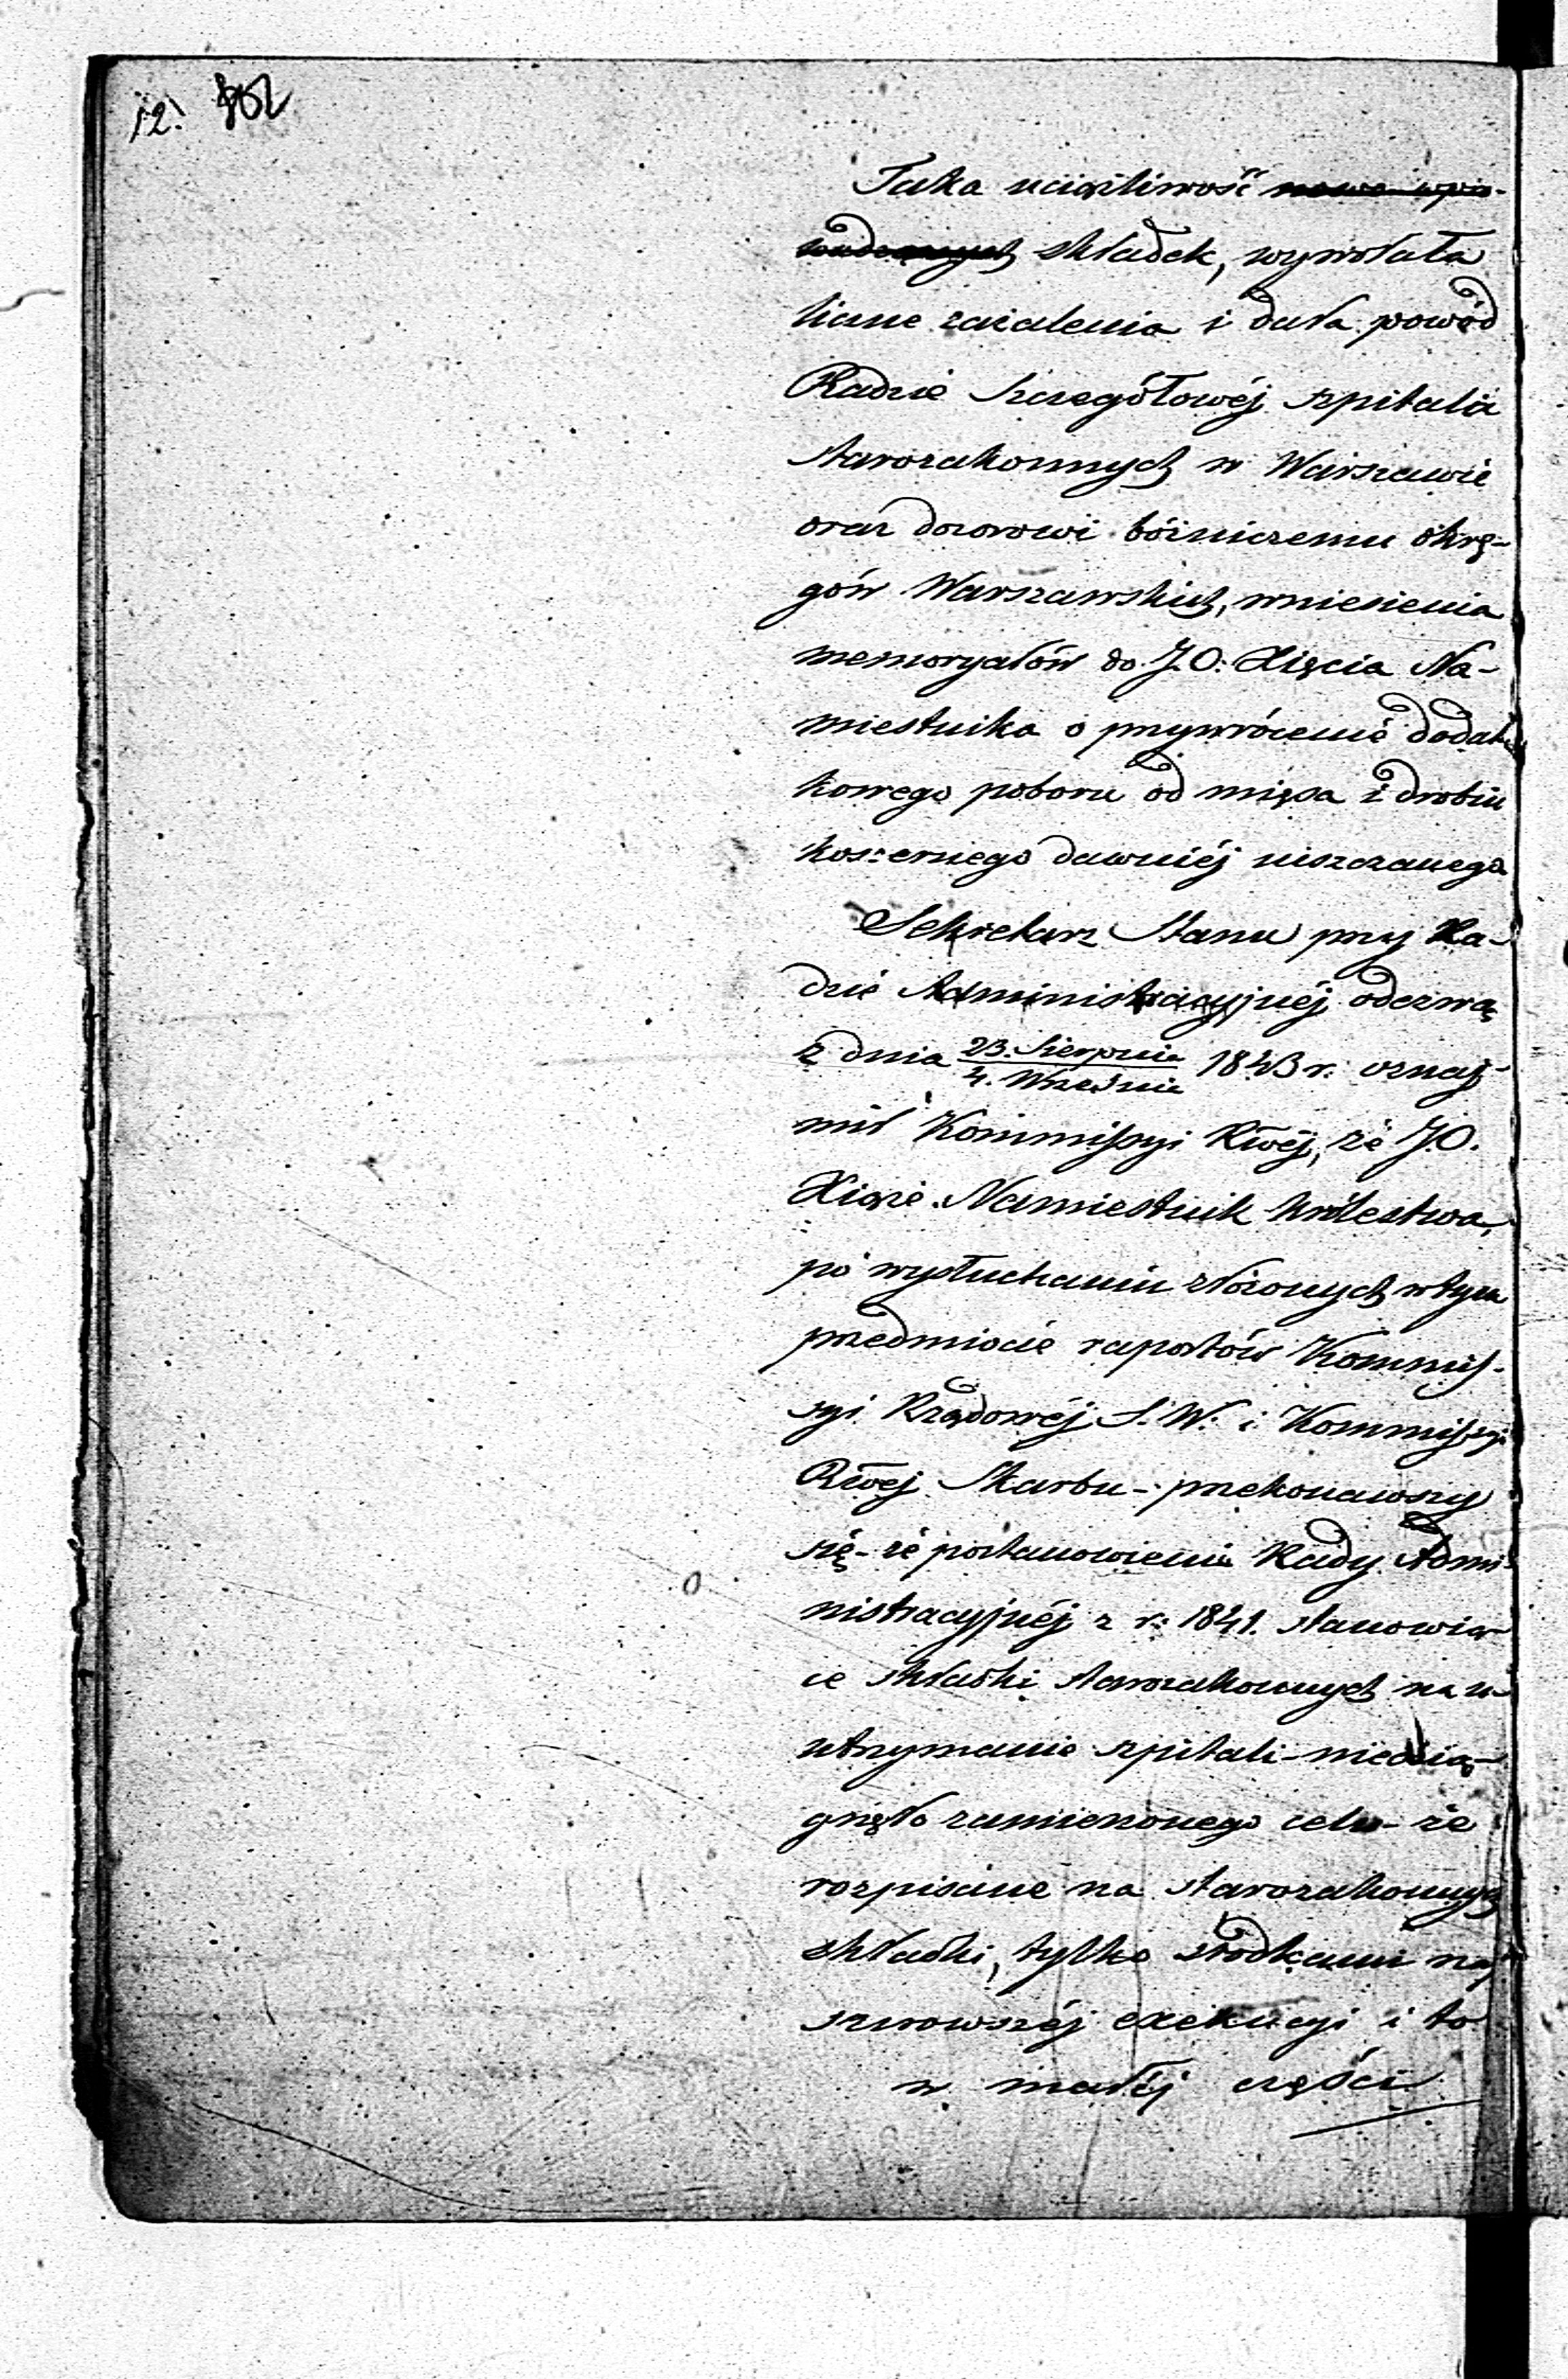 12. 862
Taka uciążliwość nowo wpro-
wadzonych składek, wywołała
liczne zażalenia i dała powód
Radzie Szczegółowéj szpitala
starozakonnych w Warszawie
oraz dozorowi bóżniczemu okrę-
gów Warszawskich, wniesienia
memoryałów do J.O: Xięcia Na-
miestnika o przywrócenie dodat-
kowego poboru od mięsa i drobiu
koszernego dawniéj uiszczanego
Sekretarz Stanu przy Ra-
dzie Administracyjnéj odezwą
z dnia 23. Sierpnia / 4. Września 1843 r. oznaj-
mił Kommissyi Rłwéj, że J.O.
Xiąże Namiestnik Królestwa,
po wysłuchaniu złożonych w tym
przedmiocie raportów Kommis-
syi Rządowéj S. W. i Kommissyi
Rłwej Skarbu - przekonawszy
się - że postanowienie Rady Admi-
nistracyjnéj z r: 1841. stanowią-
ce składki starozakonnych na u-
utrzymanie szpitali - nieosią-
gnęło zamierzonego celu - że
rozpisane na starozakonnych
składki, tylko środkami naj-
surowszéj exekucyi i to
w małéj części